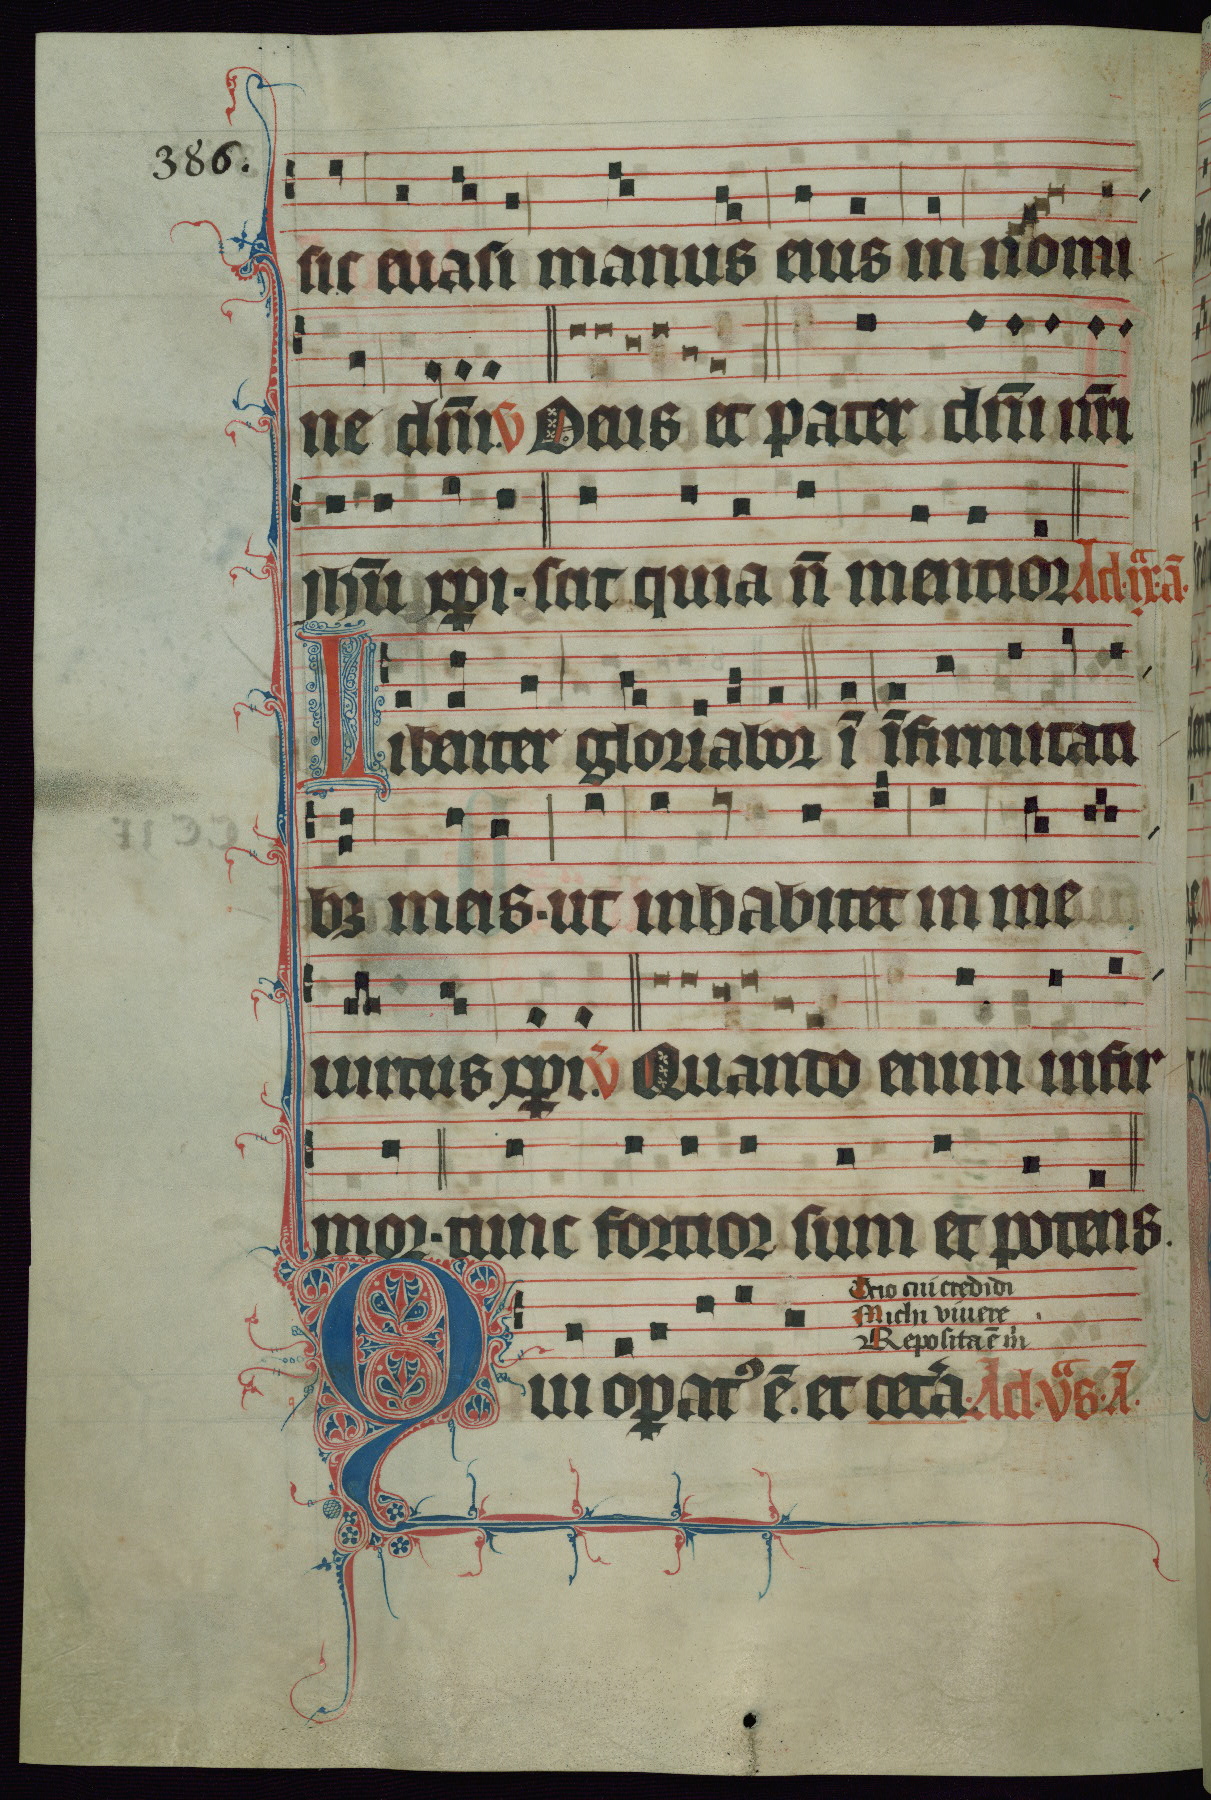 386.
sic euasi manus eius in nomi
ne dn̄i. v̄ Deus et pater dn̄i nr̄i
jhū xp̄i. scit quia n̄ mentior Ad .ix. a͞.
Libenter gloriabor ī īfirmitati
bꝫ meis. ut inhabitet in me
uirtus xp̄i. v̄ Quanto enim infir
mor. tunc fortior sum et potens.
Scio cui credidi
Michi viuere
Reposita ē m̄
Qui oꝑatꝰ ē. et cetā. Ad v̄s. a͞.